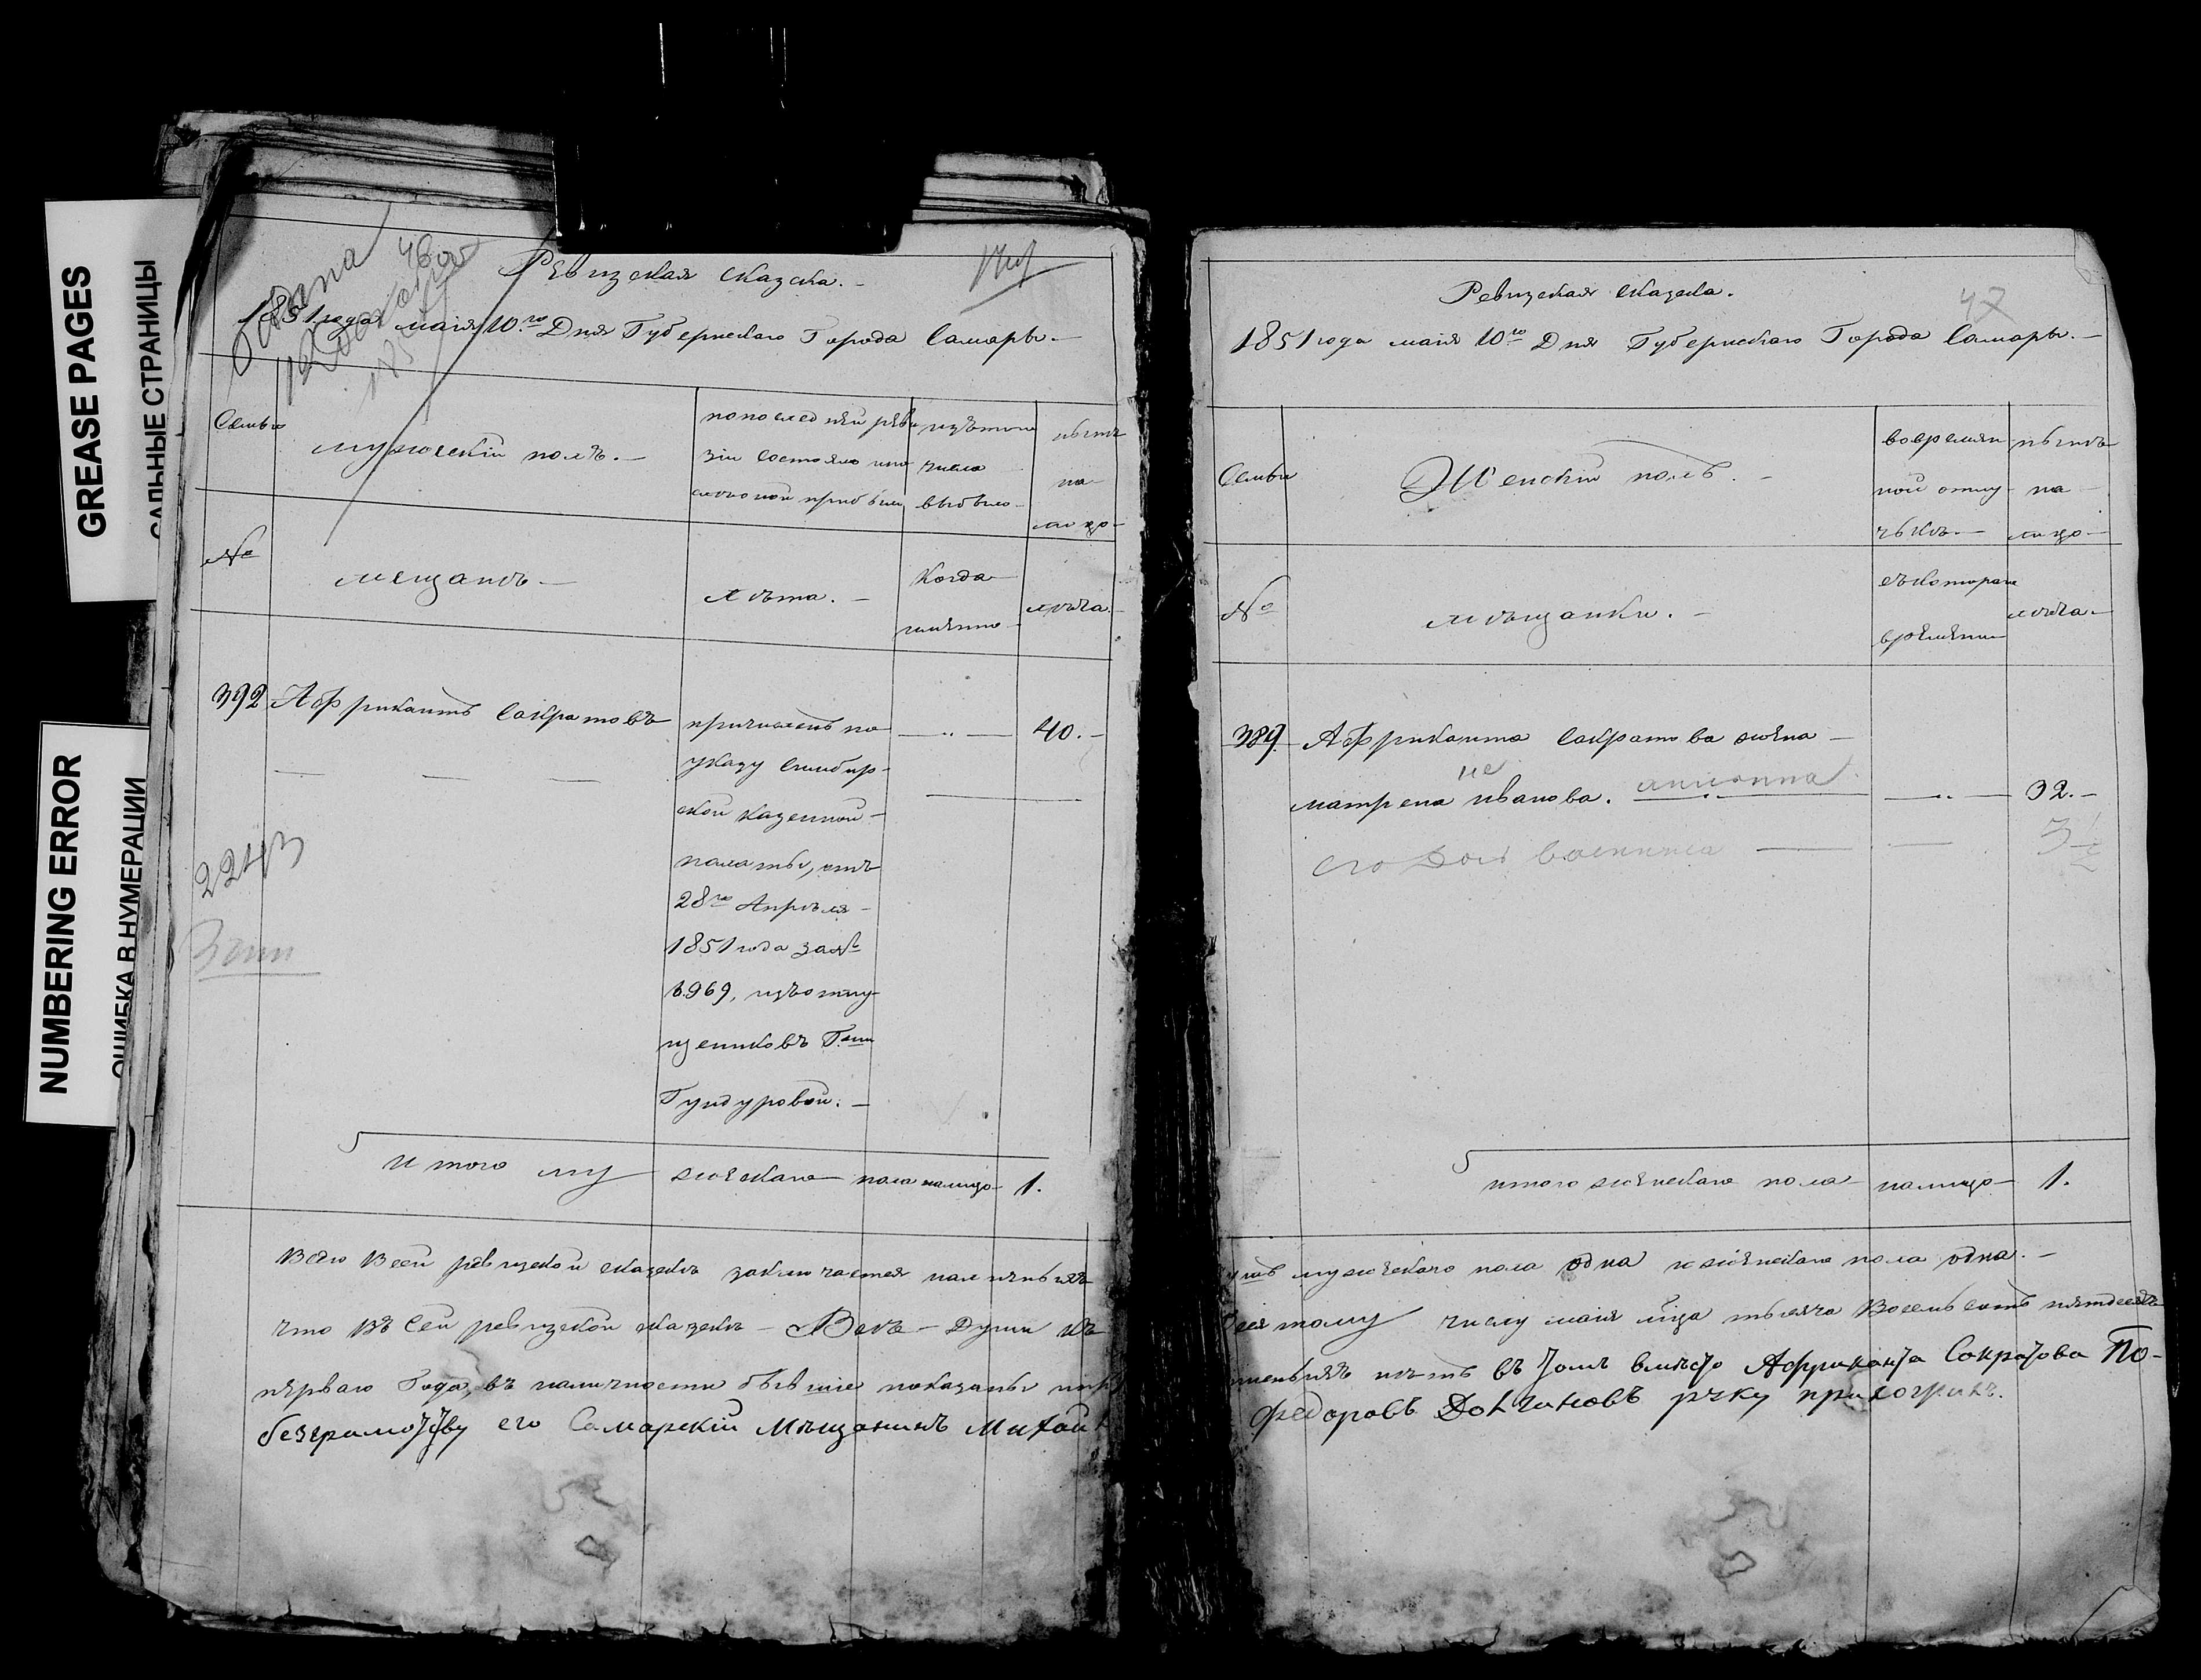 GREASE PAGES
САЛЬНЫЕ СТРАНИЦЫ
NUMBERING ERROR
ОШИБКА В НУМЕРАЦИИ
Ревизская сказка.
1851 года маія 10го Дня Губернскаго Города Самары.
Семьи
мужескій полъ.
по последней реви
зіи состояло или
после той прибыли
изъ того
числа
выбыло
нынѣ
на
лицо
№
мещанъ.
лѣта.
Когда
именно
лѣта.
392
Аффрикантъ Сакратовъ
причисленъ по
указу Симбир-
ской казенной
палаты, отъ
28го Апрѣля
1851 года за №
6.969, изъ отпу-
щенниковъ Гжи
Гундуровой.
40.
2243
Итого мужескаго пола налицо 1.
Всего Всей ревизской сказкѣ заключается
что Въ сей ревизской сказкѣ Всѣ Души къ
перваго Года, въ наличности бывшіе показаны
безграмотству его Самарскій Мѣщанинъ Михаил
Ревизская сказка.
47
1851 года маія 10го Дня Губернскаго Города Самары.
Семьи
Женскій полъ.
во времян
ной отлу
чькѣ.
нынѣ
на
лицо
№
мѣщанки.
съ котораго
времени
лѣта.
389
Аффриканта Сакратова жена
матрена иванова.
32.
его дочь
итого женскаго пола налицо 1.
мужескаго пола одна и женскаго пола одна.
тому числу маія мца тысяча Восемьсотъ пятдесятъ
нѣтъ въ томъ вмѣсто Аффриканта Сократова По-
Федоровъ Долгановъ руку приложилъ.